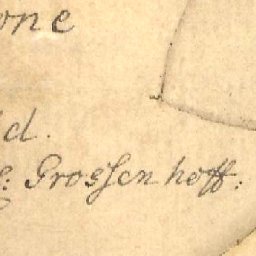 one
d.
: Grossenhoff.